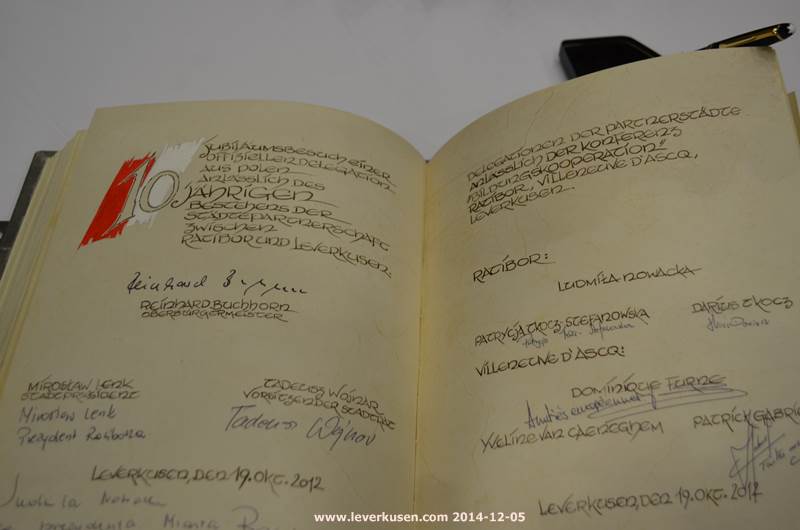 10
Jubiläumsbesuch einer
offiziellen Delegation
aus Polen
anlässlich des
jährigen
Bestehens der
Städtepartnerschaft
zwischen
Ratibor und Leverkusen:
Reinhard
Reinhard Buchhorn
Oberbürgermeister
Mirosław Lenk
Stadtpräsident
Mirosław Lenk
Prezydent Raciborza
Tadeusz Wojnar
Vorsitzender Stadtrat
Tadeusz Wojnar
Leverkusen, den 19. Okt. 2012
Delegationen der Partnerstädte
anlässlich der Konferenz
"Bildungskooperation"
Ratibor, Villeneuve d'Ascq,
Leverkusen.
Ratibor:
Ludmiła Nowacka
Patrycja Tkocz-Stefanowska
Darius Tkocz
Villeneuve d'Ascq:
Dominique Furne
Amitiés européennes
Yveline van Caeneghem
Patrick Gabrie
Leverkusen, den 19. Okt. 2012
www.leverkusen.com 2014-12-05